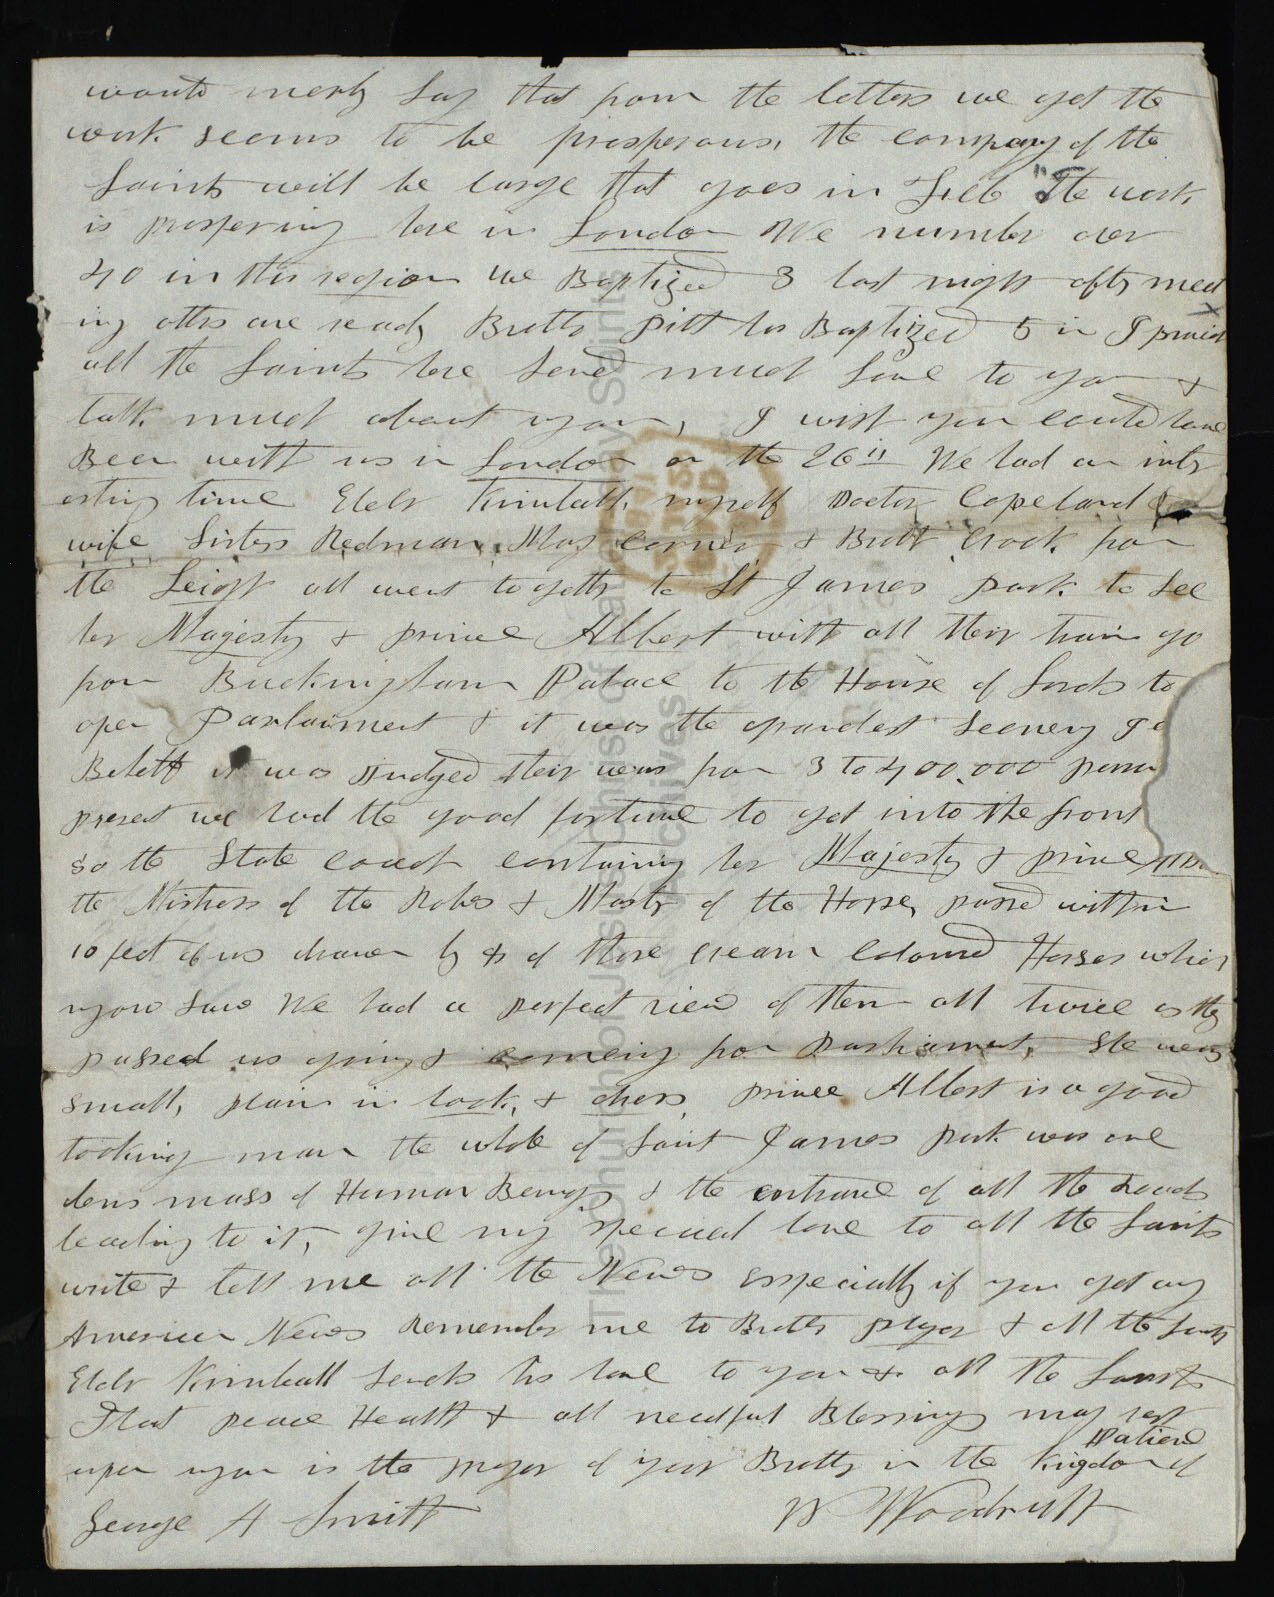 would merely say that from the letters we get the
work seems to be prosperous, the company of the
Saints will be large that goes in Feb The work
is prospering here in London We number over
40 in this region we Baptized 3 last night after meet
ing others are ready Brother Pitt has Baptized 5 in
all the Saints here send much love to you &
talk much about you, I wish you could have
Been with us in London on the 26th We had an inter
esting time Elder Kimball, myself Doctor Copeland &
wife Sisters Redman, Morgan & Brother Crook from
the Leigh all went together to St James park to see
her Majesty & prince Albert with all their train go
from Buckingham Palace to the House of Lords to
open Parlaiment & it was the grandest scenery I e
Beheld it was Judged their was from 3 to 400,000 person
present we had the good fortune to get into the front
so the State coach containing her Majesty & prince Alb
the Mistress of the Robes & Master of the Horse, passed within
10 feet of us drawn by 8 of those cream coloured Horses which
you saw We had a perfect view of them all twice as they
passed us going & comeing from Parliament, She was
small, plain in look, & dress, prince Albert is a good
looking man the whole of Saint James park was one
dens mass of Human Beings & the entrance of all the roads
leading to it, give my special love to all the Saints
write & tell me all the News especially if you get any
American News Remember me to Brother & all the Saints
Elder Kimball sends his love to you & all the Saints
That peace Health & all needful Blessings may rest
Patience
upon you is the prayer of your Brother in the Kingdom of
George A Smith W Woodruff
The Church of Jesus Christ of Latter-day Saints
Archives